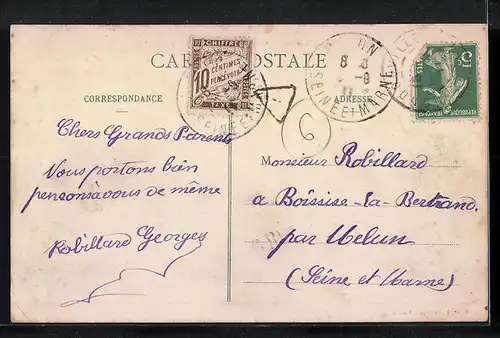 CARTE POSTALE
CHIFFRE
10 CENTIMES
À PERCEVOIR
TAXE
8
SEINE ET MARNE
5c
REPUBLIQUE FRANÇAISE
CORRESPONDANCE
ADRESSE
T
6
Chers Grands Parents
Vous portons bien
pensons à vous de même
Robillard Georges
Monsieur Robillard
a Boissise-la-Bertrand
par Melun
(Seine et Marne)